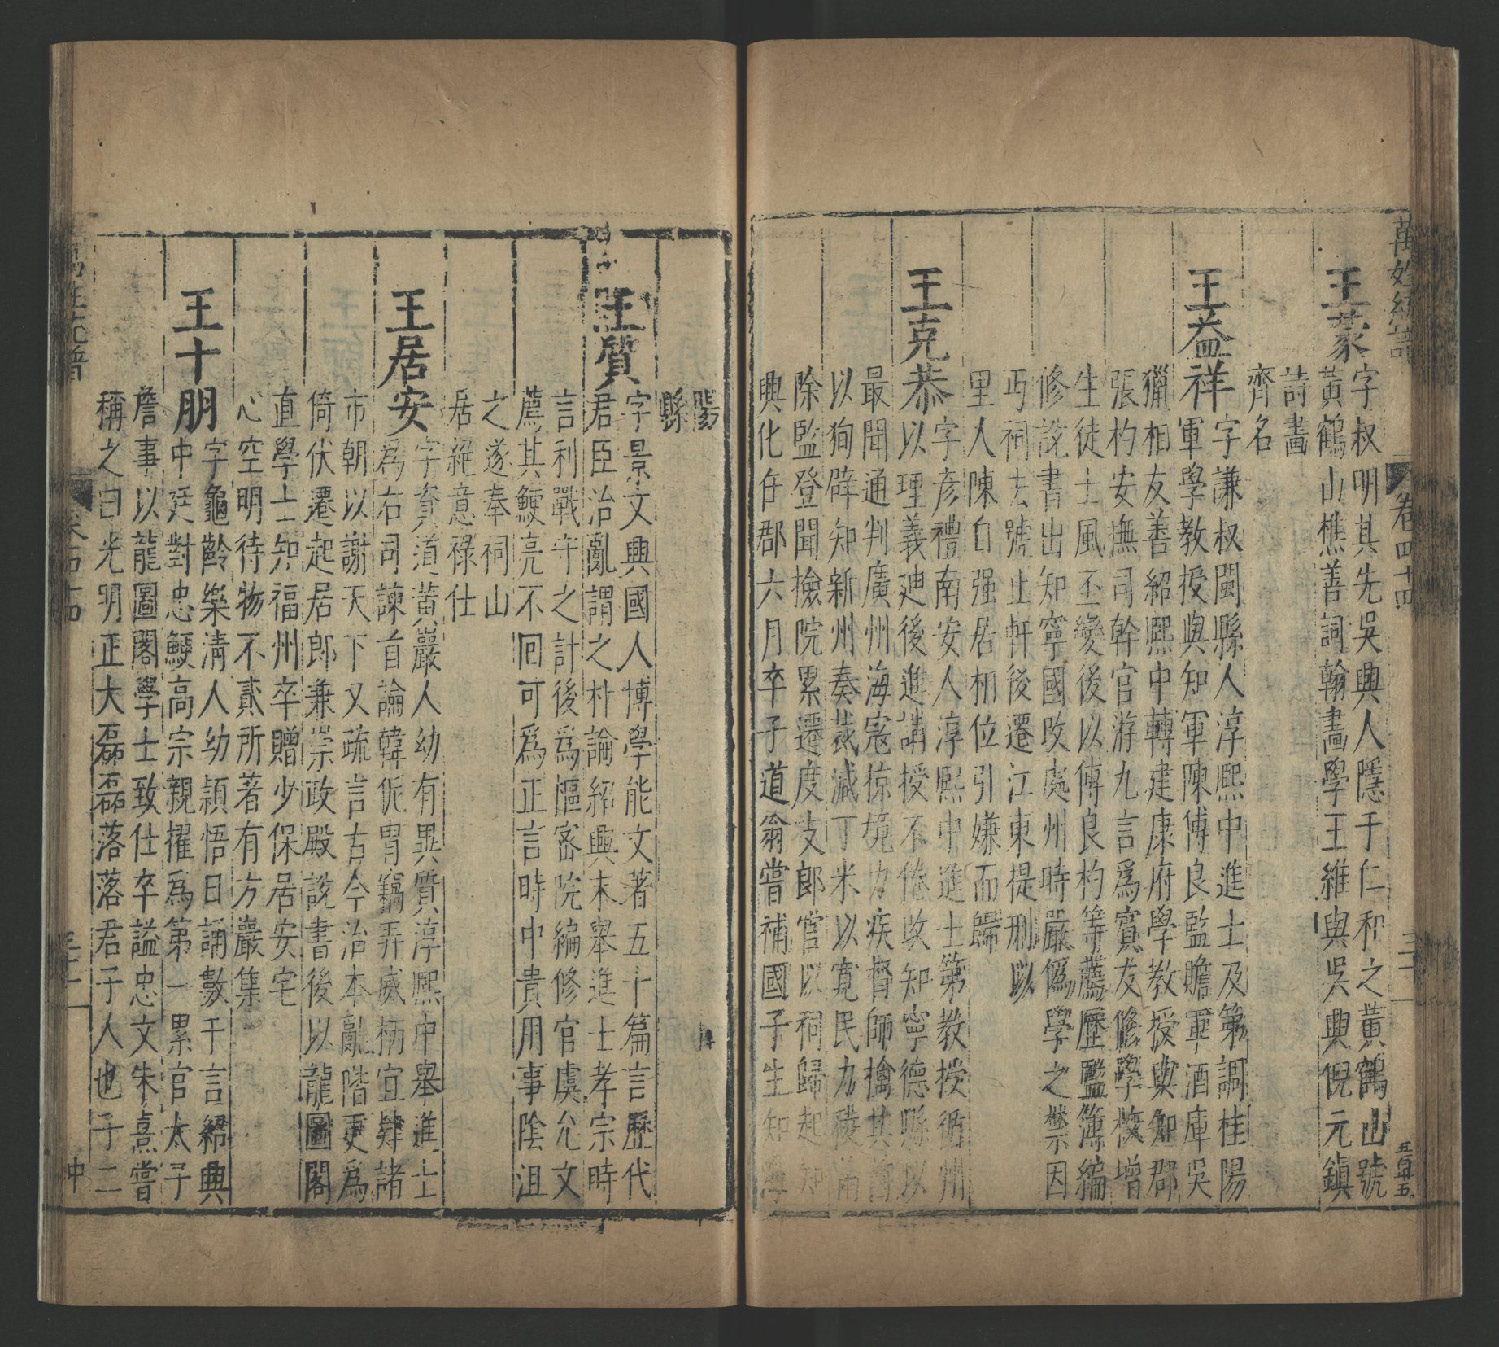 萬姓統譜
卷四十四
王蒙
字叔明其先吳興人隱于仁和之黃鶴山號
黃鶴山樵善詞翰畫學王維與吳興倪元鎮
詩畵
齊名
王益祥
字謙叔閩縣人淳熙中進士及第調桂陽
軍學教授與知軍陳傅良監贍軍酒庫吳
獵相友善紹熙中轉建康府學教授與知郡
張杓安撫司幹官游九言爲賓友脩學校增
生徒士風丕變後以傅良杓等薦歷監簿編
修說書出知寧國改處州時嚴僞學之禁因
丐祠去號止軒後遷江東提刑以
里人陳自强居相位引嫌而歸
王克恭
字彥禮南安人淳熙中進士第教授循州
以理義廸後進講授不倦改知寧德縣以
最聞通判廣州海寇掠境力疾督師擒其酋
以狥辟知新州奏裁減丁米以寛民力
除監登聞撿院累遷度支郎官以祠歸起知
興化在郡六月卒子道翁嘗補國子生知
陽
縣
王質
字景文興國人博學能文著五十篇言歷代
君臣治亂謂之朴論紹興末舉進士孝宗時
言利戰守之計後爲樞宻院編修官虞允文
薦其鯁亮不回可爲正言時中貴用事陰沮
之遂奉祠山
居絕意祿仕
王居安
字資道黃巖人幼有異質淳熙中舉進士
爲右司諫首論韓侂冑竊弄威柄宜肆諸
市朝以謝天下又疏言古今治本亂階更爲
倚伏遷起居郎兼崇政殿說書後以龍圖閣
直學士知福州卒贈少保居安宅
心空明待物不貳所著有方巖集
王十朋
字龜齡樂清人幼穎悟日誦數千言紹興
中廷對忠鯁高宗親擢爲第一累官太子
詹事以龍圖閣學士致仕卒謚忠文朱熹嘗
稱之曰光明正大磊磊落落君子人也子二